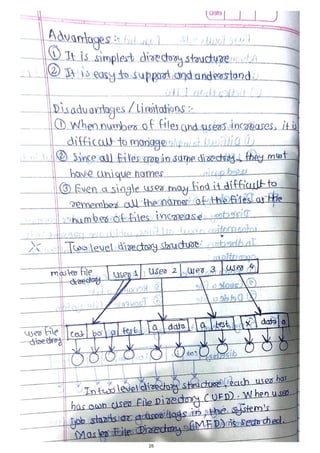 Date
Advantages :-
① It is simplest directory structure
② It is easy to support and understand.
Disadvantages / Limitations :-
① When number of files and users increases, it is
difficult to manage
② Since all files are in same directory, they must
have unique names
③ Even a single user may find it difficult to
remember all the names of the files as the
number of files increase.
X Two level directory structure :
master file directory user 1 user 2 user 3 user 4
user file directory test a data a test x data a
In two level directory structure, each user has
has own user File Directory (UFD). When user
job starts or a user logs in the system's
Master File Directory (MFD) is searched.
26